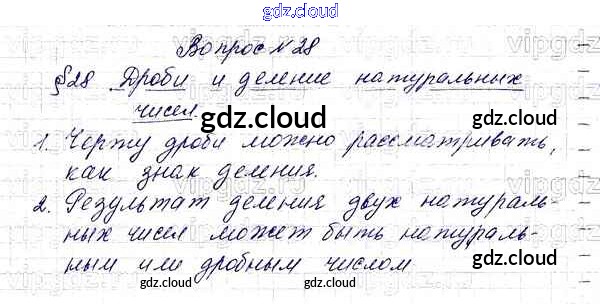 gdz.cloud
Вопрос № 28
§28 Дроби и деление натуральных
чисел
gdz.cloud
1. Черту дроби можно рассматривать,
как знак деления.
2. Результат деления двух натураль-
ных чисел может быть натураль-
ным или дробным числом
gdz.cloud